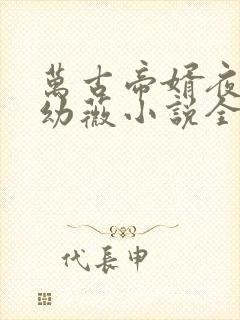 萬古帝婿夜
幼薇小説全
代長申